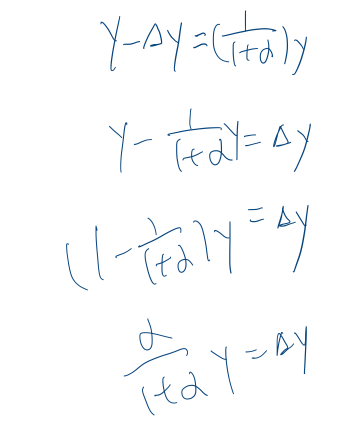 y - Δy = (1/(1+α))y
y - 1/(1+α) y = Δy
(1 - 1/(1+α))y = Δy
α/(1+α) y = Δy